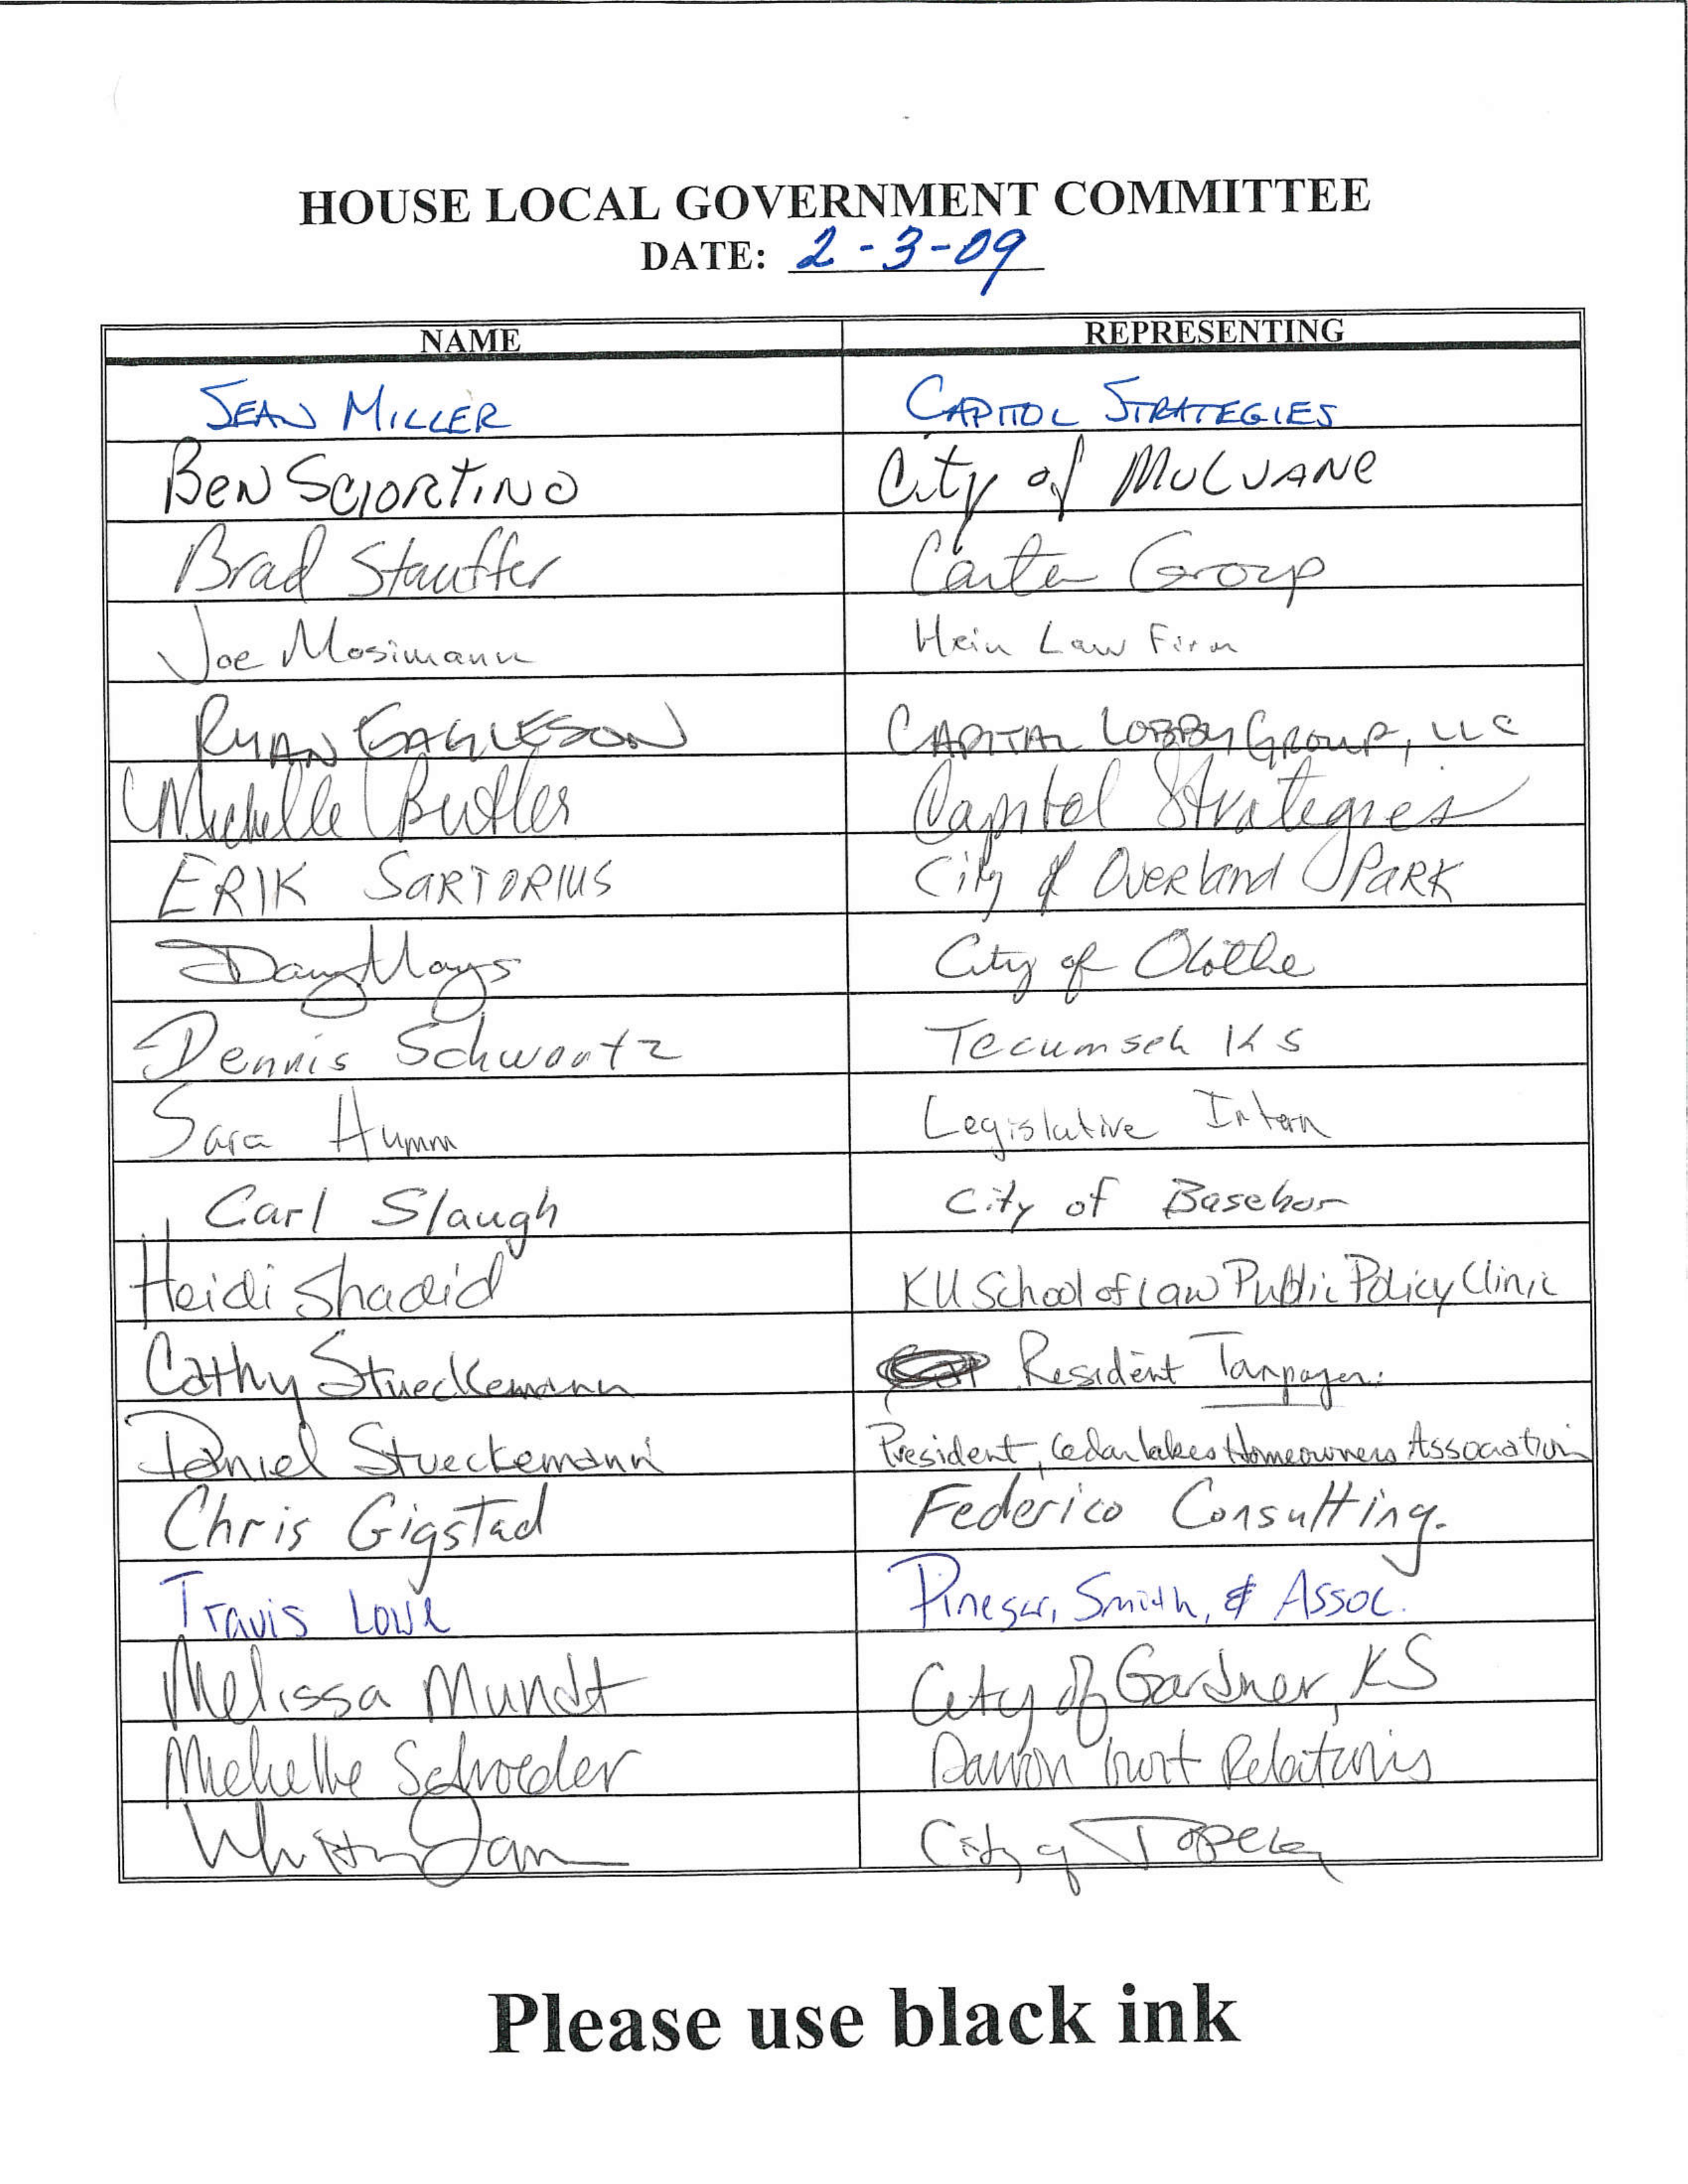 HOUSE LOCAL GOVERNMENT COMMITTEE
DATE: 2-3-09
NAME REPRESENTING
SEAN MILLER CAPITOL STRATEGIES
BEN SCIORTINO City of MULVANE
Brad Stauffer Carter Group
Joe Mosimann Hein Law Firm
RYAN EAGLESON CAPITAL LOBBY GROUP, LLC
Michelle Butler Capitol Strategies
ERIK SARTORIUS City of Overland PARK
Doug Mays City of Olathe
Dennis Schwartz Tecumseh KS
Sara Humm Legislative Intern
Carl Slaugh City of Basehor
Heidi Shadid KU School of Law Public Policy Clinic
Cathy Stueckemann Resident Taxpayer
Daniel Stueckemann President, Cedar Lakes Homeowners Association
Chris Gigstad Federico Consulting.
Travis Lowe Pinegar, Smith, & Assoc.
Melissa Mundt City of Gardner, KS
Michelle Schroeder Damron Govt Relations
City of Topeka
Please use black ink